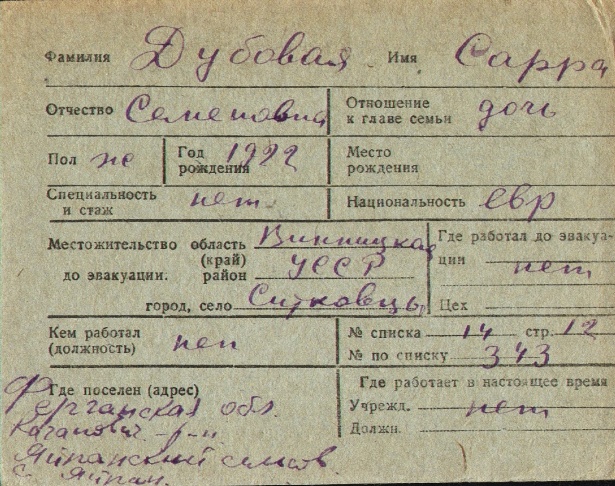 Фамилия Дубовая Имя Сарра
Отчество Семеновна Отношение к главе семьи дочь
Пол ж Год рождения 1922 Место рождения
Специальность и стаж нет Национальность евр
Местожительство область Винницкая Где работал до эвакуа-
(край) ции нет
до эвакуации. район УССР
город, село Ситковцы Цех
Кем работал (должность) нет № списка 14 стр. 12
№ по списку 343
Где поселен (адрес) Где работает в настоящее время
Ферганская обл. Учрежд. нет
Каганович. р-н Должн.
Яйпанский сельсов.
с. Яйпан.